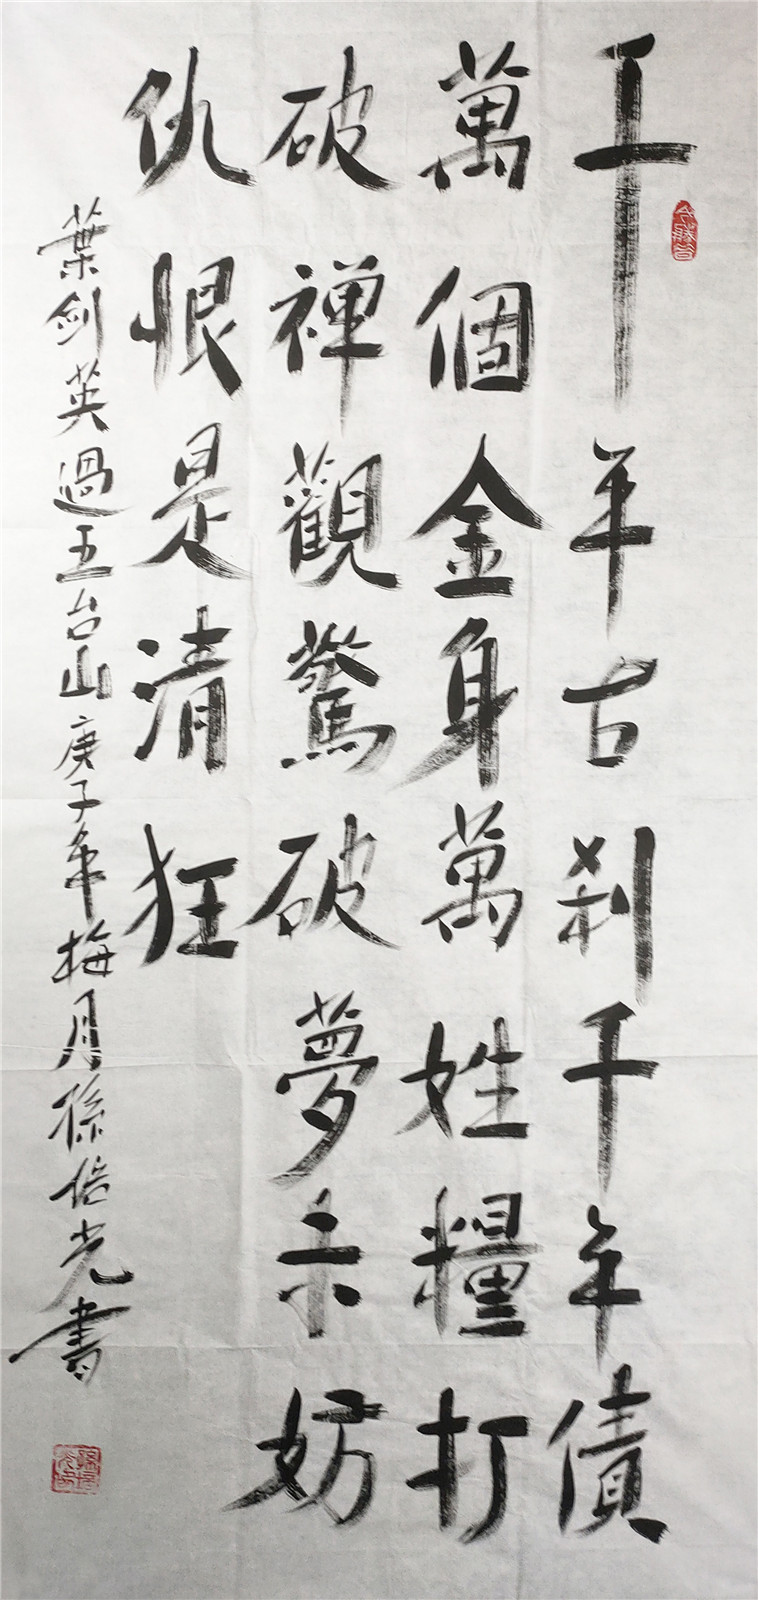 千年古刹千年債
萬個金身萬姓糧打
破禪觀驚破夢未妨
仇恨是清狂
葉劍英過五台山庚子年梅月孫倍光書